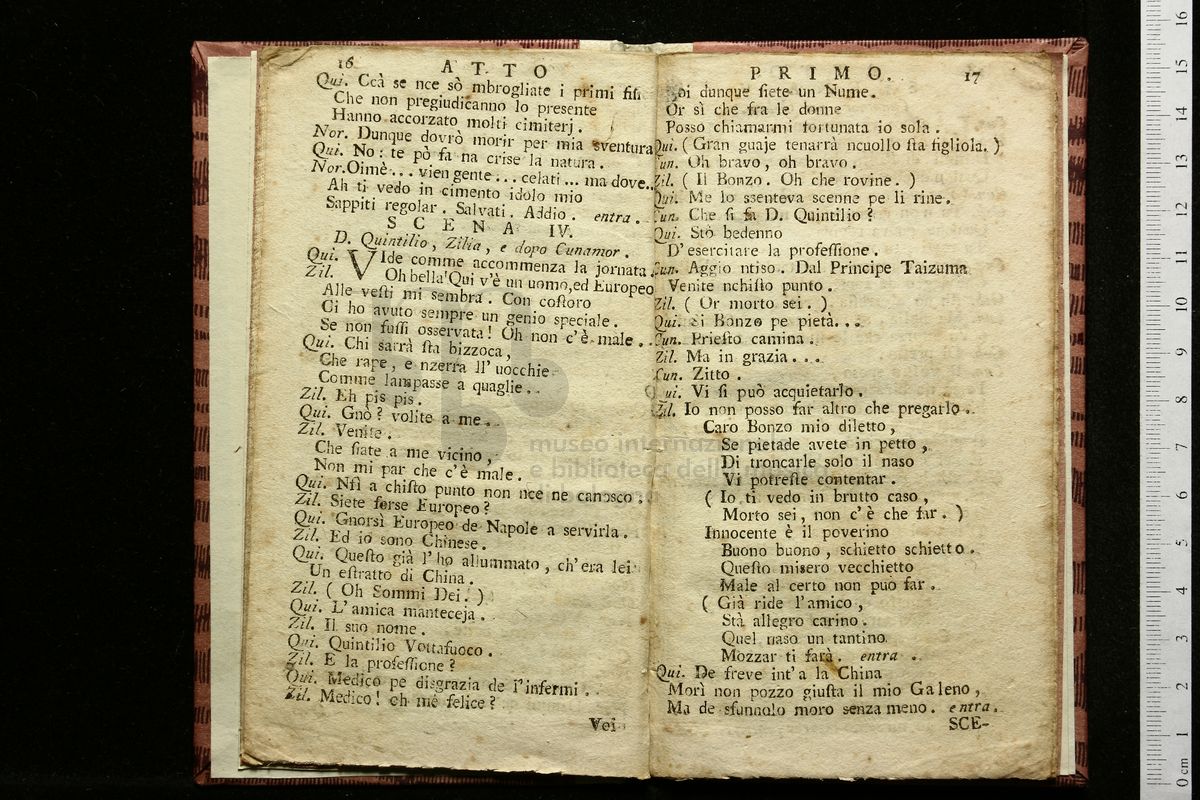 16
ATTO
Qui. Ccà se nce sò mbrogliate i primi fisi
Che non pregiudicanno lo presente
Hanno accorzato molti cimiterj.
Nor. Dunque dovrò morir per mia sventura
Qui. No: te pò fa na crise la natura.
Nor. Oimè... vien gente... celati... ma dove..
Ah ti vedo in cimento idolo mio
Sappiti regolar. Salvati. Addio. entra.
SCENA IV.
D. Quintilio, Zilia, e dopo Cunamor.
Qui. VIde comme accommenza la jornata.
Zil. Oh bella! Qui v'è un uomo, ed Europeo
Alle vesti mi sembra. Con costoro
Ci ho avuto sempre un genio speciale.
Se non fussi osservata! Oh non c'è male..
Qui. Chi sarrà sta bizzoca,
Che rape, e nzerra ll'uocchie
Comme lampasse a quaglie..
Zil. Eh pis pis.
Qui. Gnò? volite a me..
Zil. Venite.
Che siate a me vicino,
Non mi par che c'è male.
Qui. Nsì a chisto punto non nce ne canosco.
Zil. Siete forse Europeo?
Qui. Gnorsì Europeo de Napole a servirla.
Zil. Ed io sono Chinese.
Qui. Questo già l'ho allummato, ch'era lei
Un estratto di China.
Zil. (Oh Sommi Dei.)
Qui. L'amica manteceja.
Zil. Il suo nome.
Qui. Quintilio Vottafuoco.
Zil. E la professione?
Qui. Medico pe disgrazia de l'infermi.
Zil. Medico! oh me felice?
Voi
museo internazionale
e biblioteca della musica
PRIMO.
17
Voi dunque siete un Nume.
Or sì che fra le donne
Posso chiamarmi fortunata io sola.
Qui. (Gran guaje tenarrà ncuollo sta figliola.)
Cun. Oh bravo, oh bravo.
Zil. (Il Bonzo. Oh che rovine.)
Qui. Me lo ssenteva scenne pe li rine.
Cun. Che si fa D. Quintilio?
Qui. Stò bedenno
D'esercitare la professione.
Cun. Aggio ntiso. Dal Principe Taizuma
Venite nchisto punto.
Zil. (Or morto sei.)
Qui. Si Bonzo pe pietà...
Cun. Priesto camina.
Zil. Ma in grazia...
Cun. Zitto.
Qui. Vi si può acquietarlo.
Zil. Io non posso far altro che pregarlo.
Caro Bonzo mio diletto,
Se pietade avete in petto,
Di troncarle solo il naso
Vi potreste contentar.
(Io ti vedo in brutto caso,
Morto sei, non c'è che far.)
Innocente è il poverino
Buono buono, schietto schietto.
Questo misero vecchietto
Male al certo non può far.
(Già ride l'amico,
Stà allegro carino.
Quel naso un tantino
Mozzar ti farà. entra.
Qui. De freve int'a la China
Morì non pozzo giusta il mio Galeno,
Ma de sfunnolo moro senza meno. entra.
SCE-
0 cm 1 2 3 4 5 6 7 8 9 10 11 12 13 14 15 16